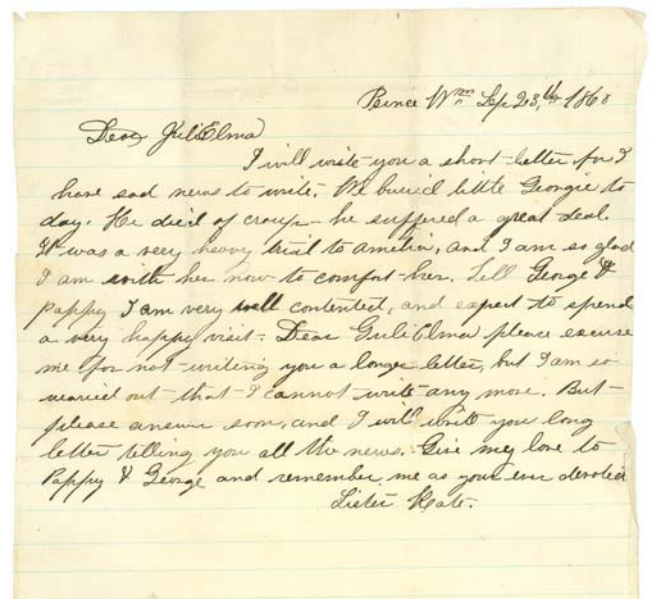 Prince Wm Sep 23,th 1860
Dear GuliElma
I will write you a short letter, for I
have sad news to write. We buried little Georgie to
day. He died of croup - he suffered a great deal.
It was a very heavy trial to Amelia, and I am so glad
I am with her now to comfort her. Tell George &
pappy I am very well contented, and expect to spend
a very happy visit. Dear GuliElma please excuse
me for not writing you a longer letter, but I am so
worried out that I cannot write any more. But
please answer soon, and I will write you long
letter telling you all the news. Give my love to
Pappy & George and remember me as your ever devoted
Sister Kate.